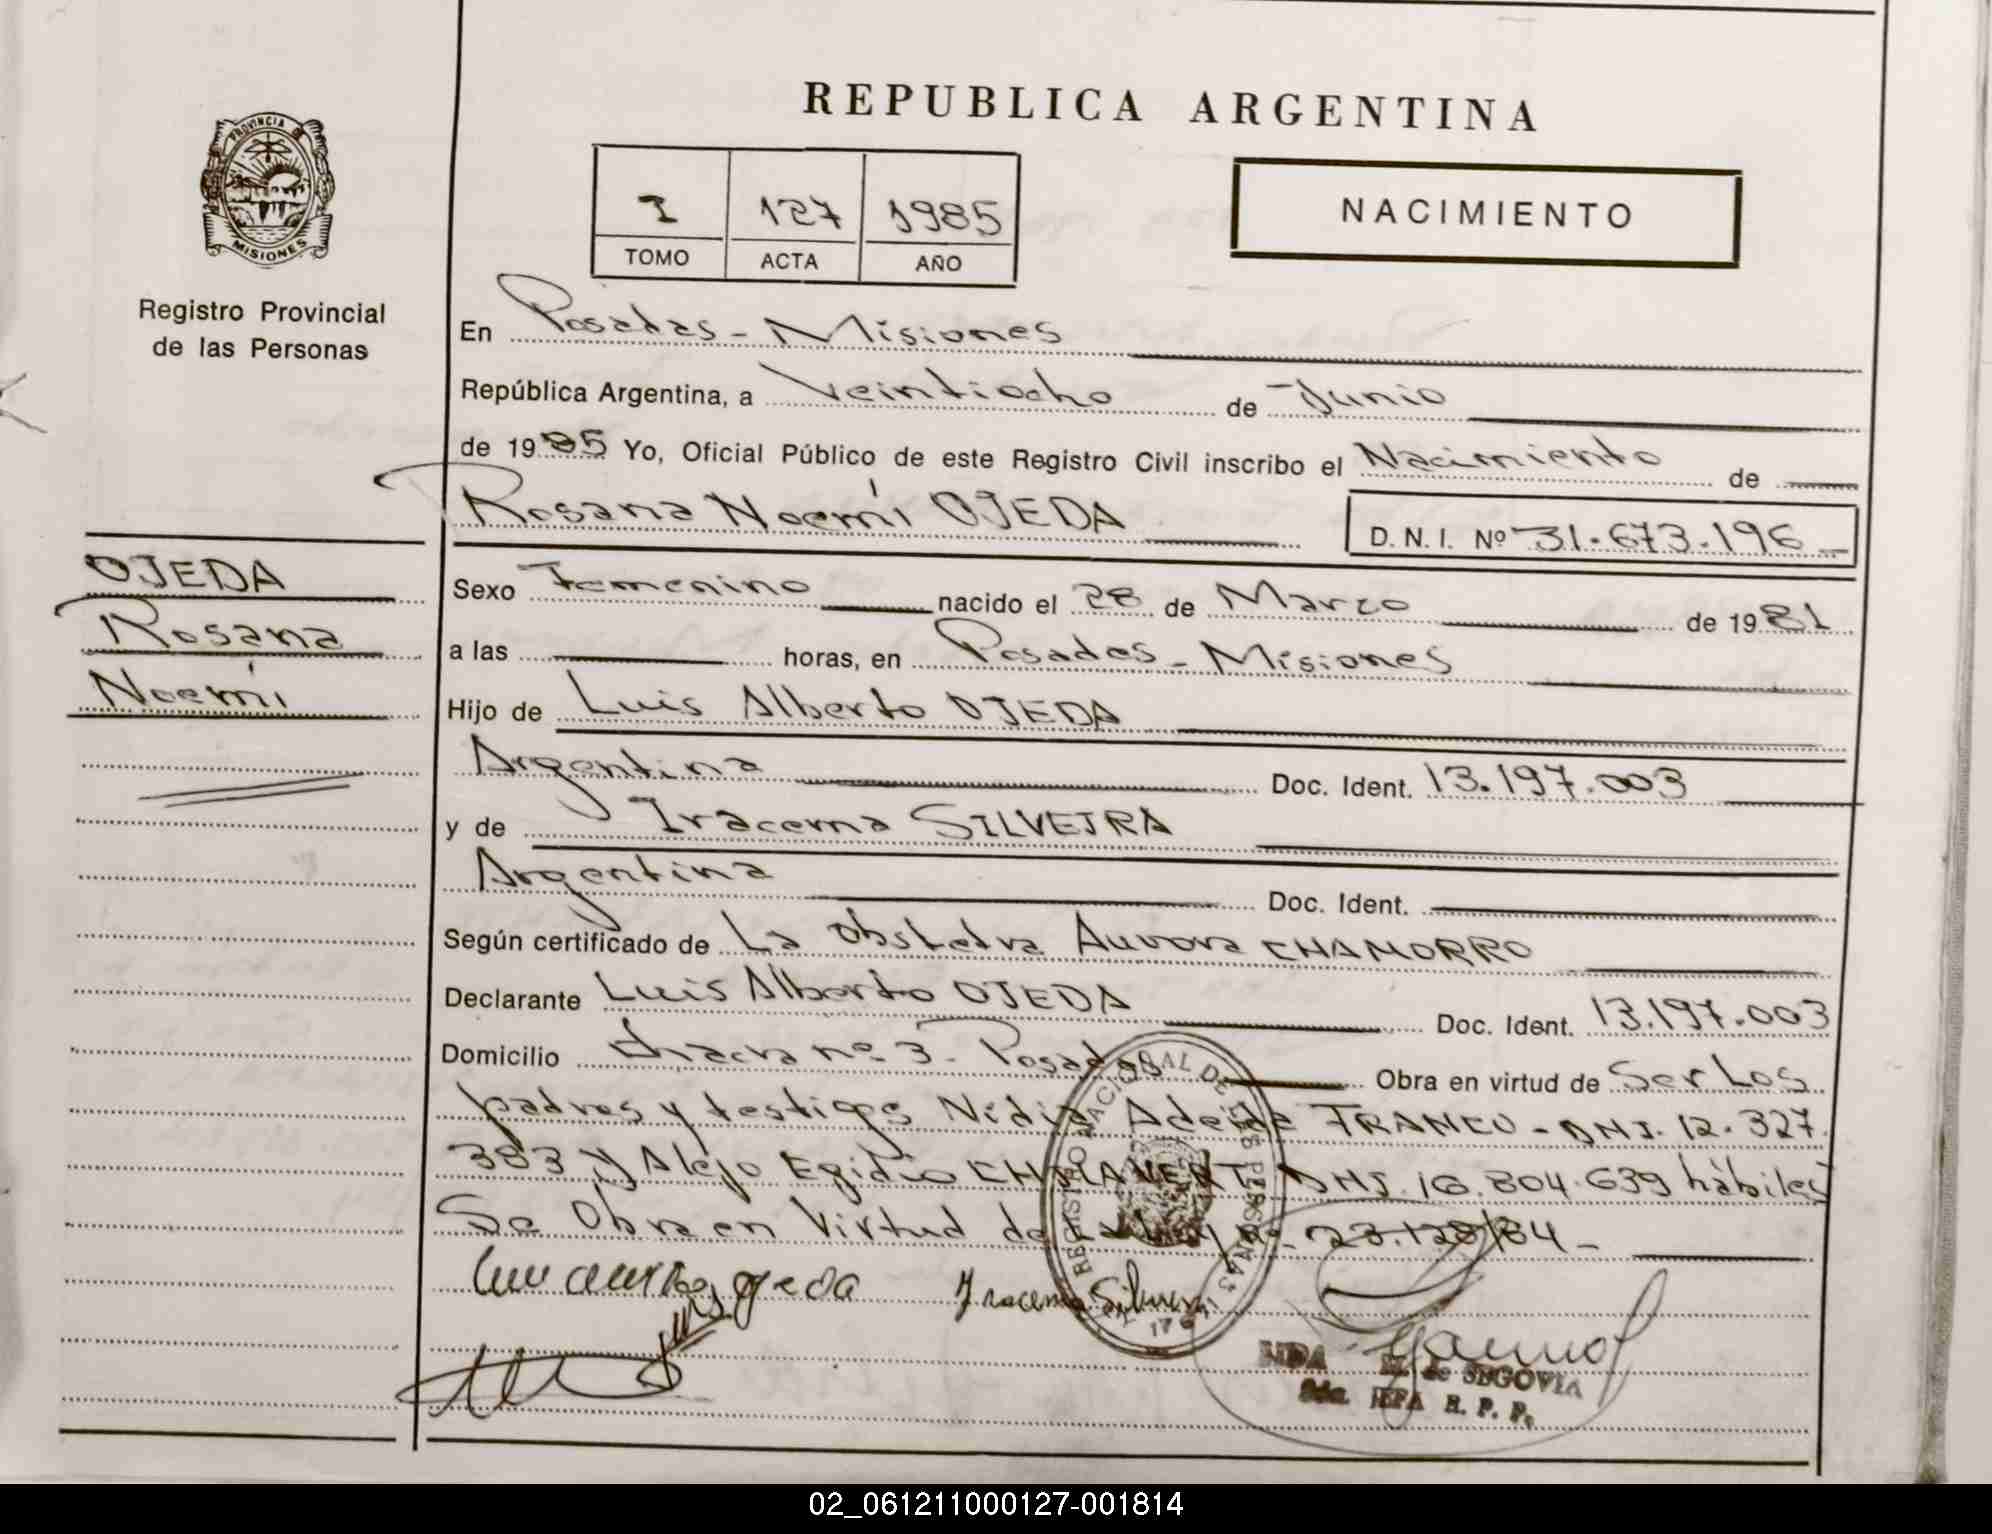 REPUBLICA ARGENTINA
PROVINCIA DE
MISIONES
Registro Provincial
de las Personas
I 127 1985
TOMO ACTA AÑO
NACIMIENTO
En Posadas - Misiones
República Argentina, a Veintiocho de Junio
de 1985 Yo, Oficial Público de este Registro Civil inscribo el Nacimiento de
Rosana Noemí OJEDA
D. N. I. Nº 31.673.196
OJEDA
Rosana
Noemí
Sexo Femenino nacido el 28 de Marzo de 1981
a las horas, en Posadas - Misiones
Hijo de Luis Alberto OJEDA
Argentina Doc. Ident. 13.197.003
y de Iracema SILVEIRA
Argentina Doc. Ident.
Según certificado de La Obstetra Aurora CHAMORRO
Declarante Luis Alberto OJEDA Doc. Ident. 13.197.003
Domicilio chacra nº 3 - Posadas Obra en virtud de Ser Los
padres y testigos Nidia FRANCO - DNI. 12.327.
383 y Alejo Egidio DNI. 16.804.639 hábiles
Se Obra en Virtud de Ley nº 23.128/84 -
ojeda Iracema Silveira
REGISTRO NACIONAL DE LAS PERSONAS
M. de SEGOVIA
JEFA R. P. P.
02_061211000127-001814